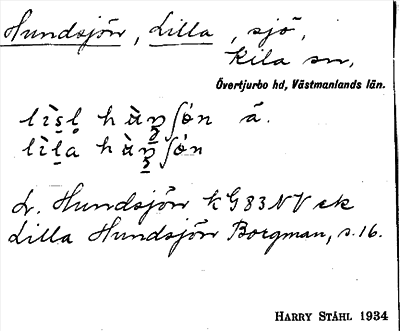 Hundsjön, Lilla, sjö,
Kila sn,
Övertjurbo hd, Västmanlands län.
å.
L. Hundsjön kG83NV ek
Lilla Hundsjön Borgman, s. 16.
HARRY STÅHL 1934